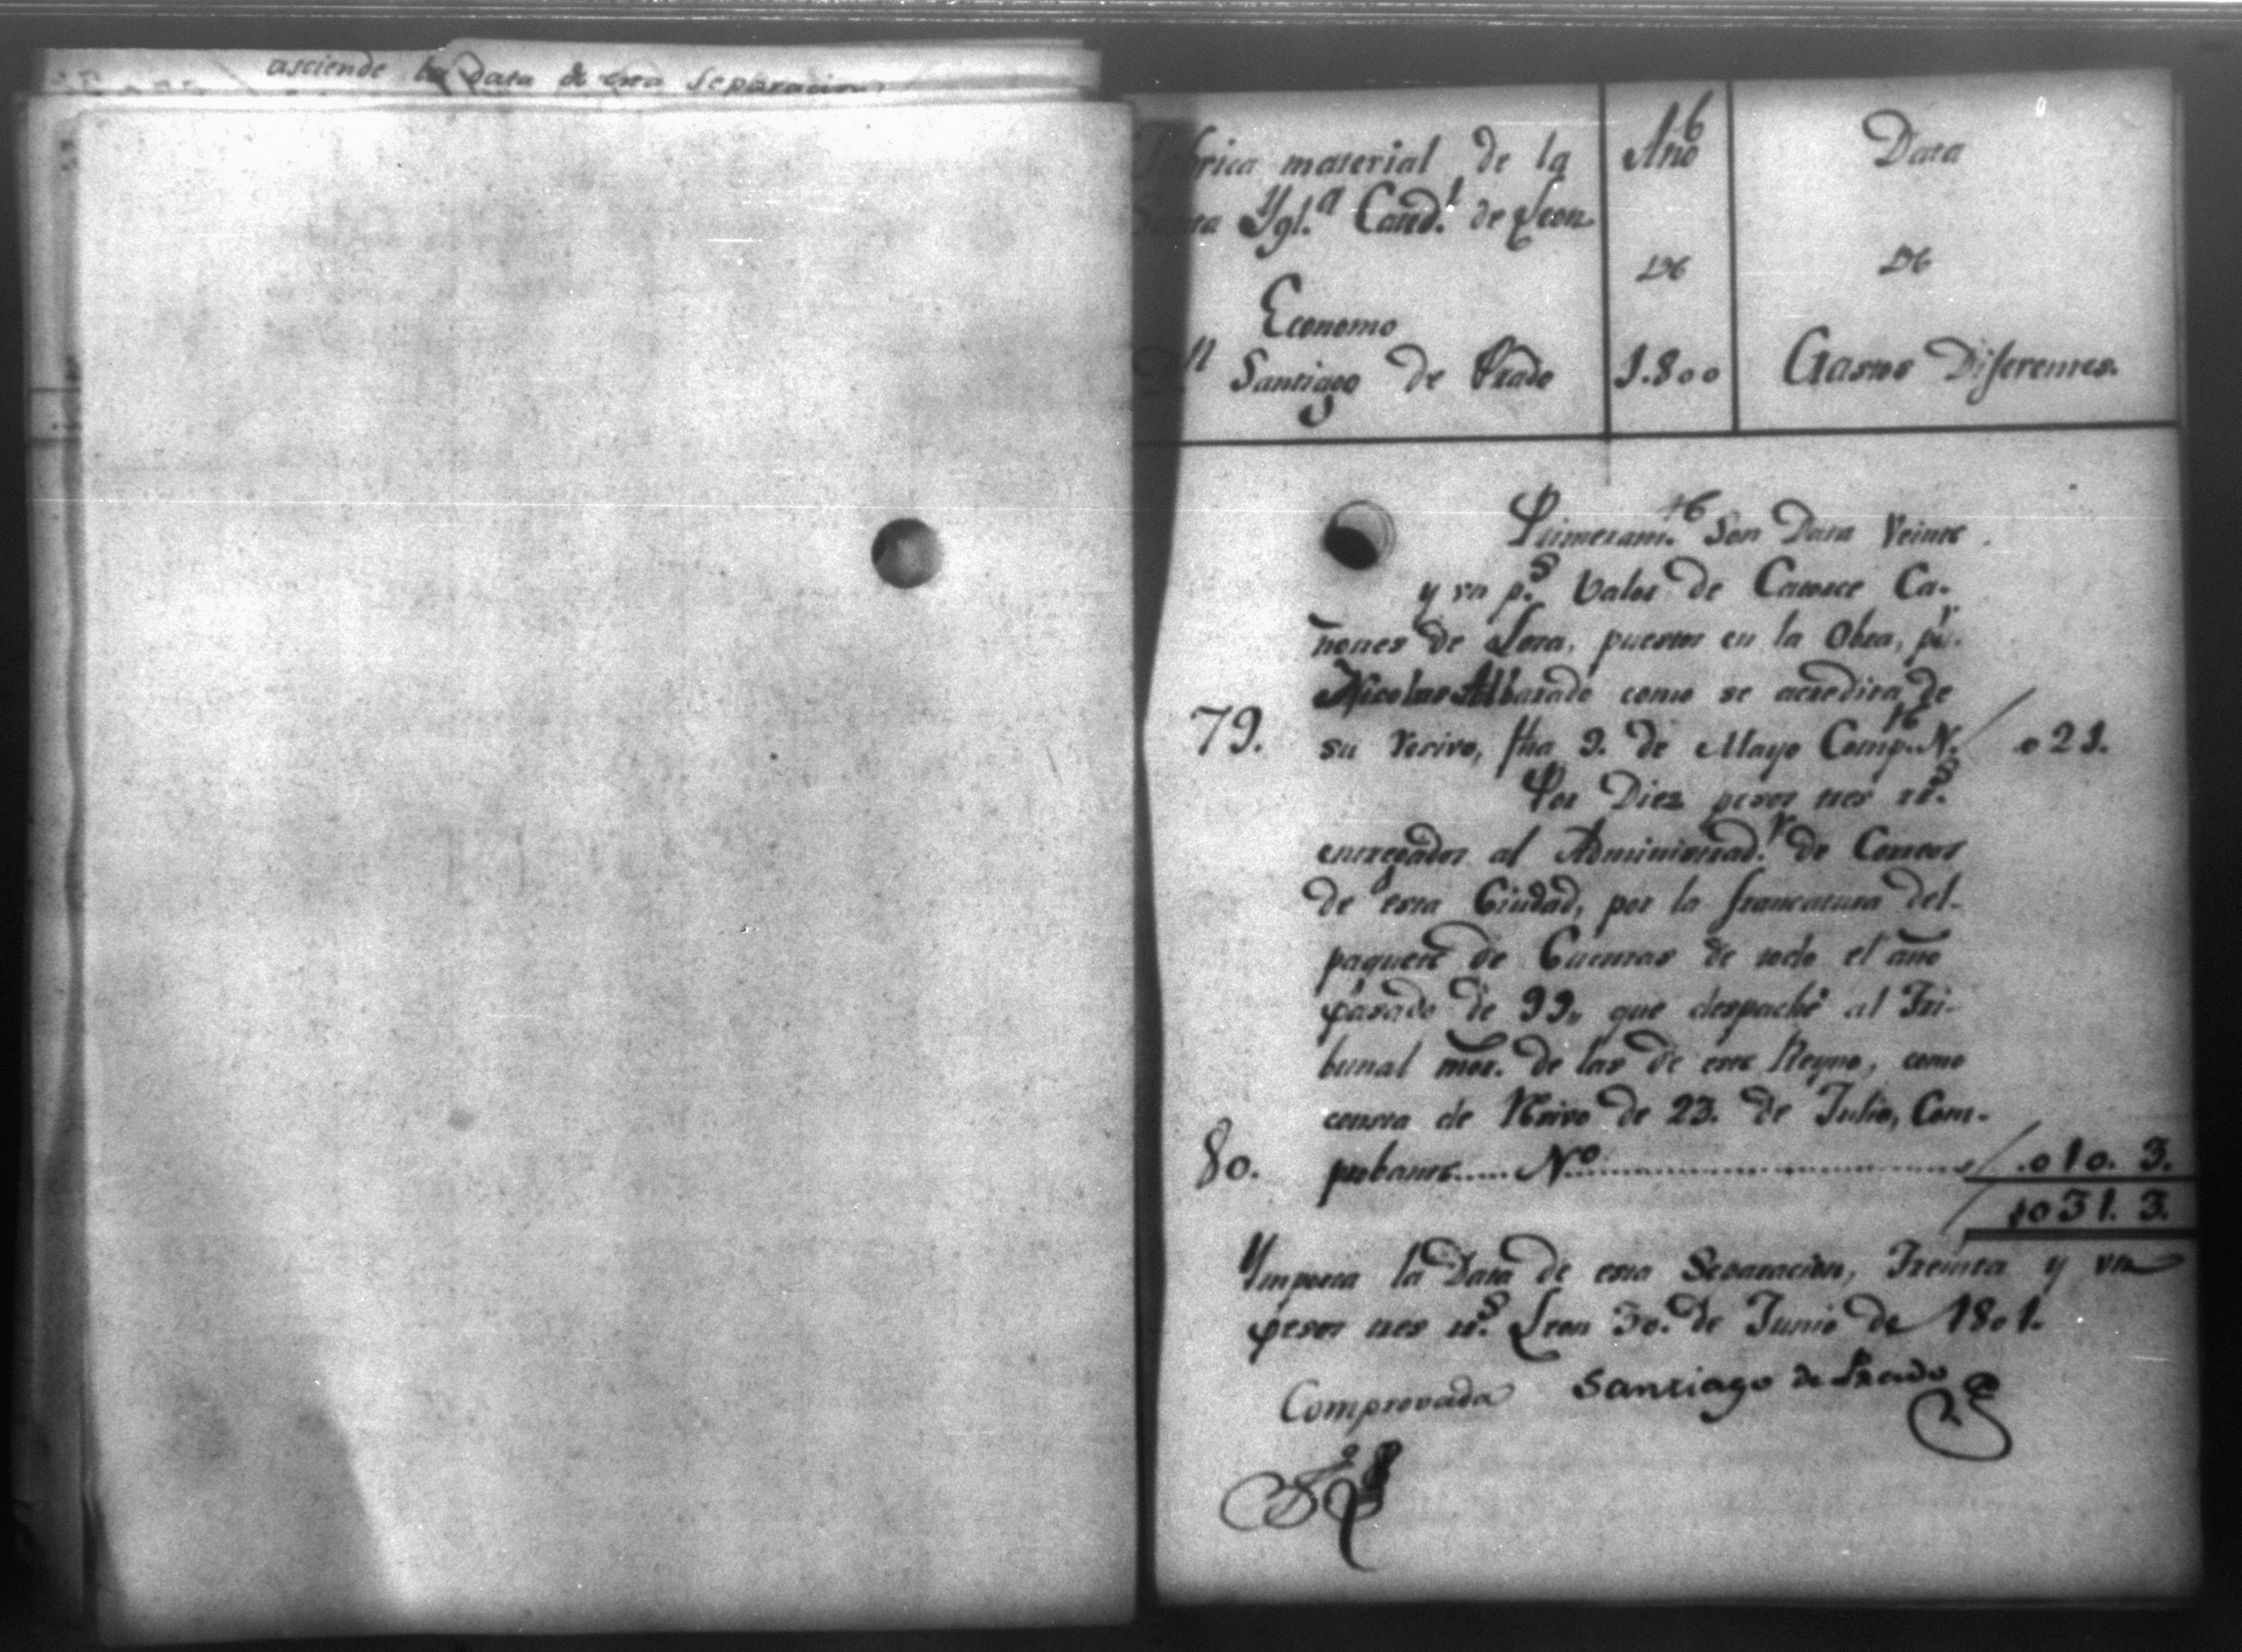 asciende la Data de esta Separacion
Fabrica material de la
Santa Ygl.ª Cated.l de Leon
Economo
Dn Santiago de Prado
6
Año
de
1.800
Data
de
Gastos Diferentes.
Primeram.te Son Data Veinte
y un p.s valor de Catorce Ca-
ñones de Lora, puestos en la Obra, p.r
Nicolas Albarado como se acredita de
79. su recivo, fha 9. de Mayo Comp.te N. 021.
Por Diez pesos tres rr.s
entregados al Administrad.r de Correos
de esta Ciudad, por la francatura del
paquete de Cuentas de todo el año
pasado de 99,, que despaché al Tri-
bunal mor. de las de este Reyno, como
consta de Recivo de 23. de Julio, Com-
80. probante..... Nº .010. 3.
$031. 3.
Ymporta la Data de esta Separacion, Treinta y un
pesos tres rr.s Leon 30. de Junio de 1801.
Comprovada Santiago de Prado